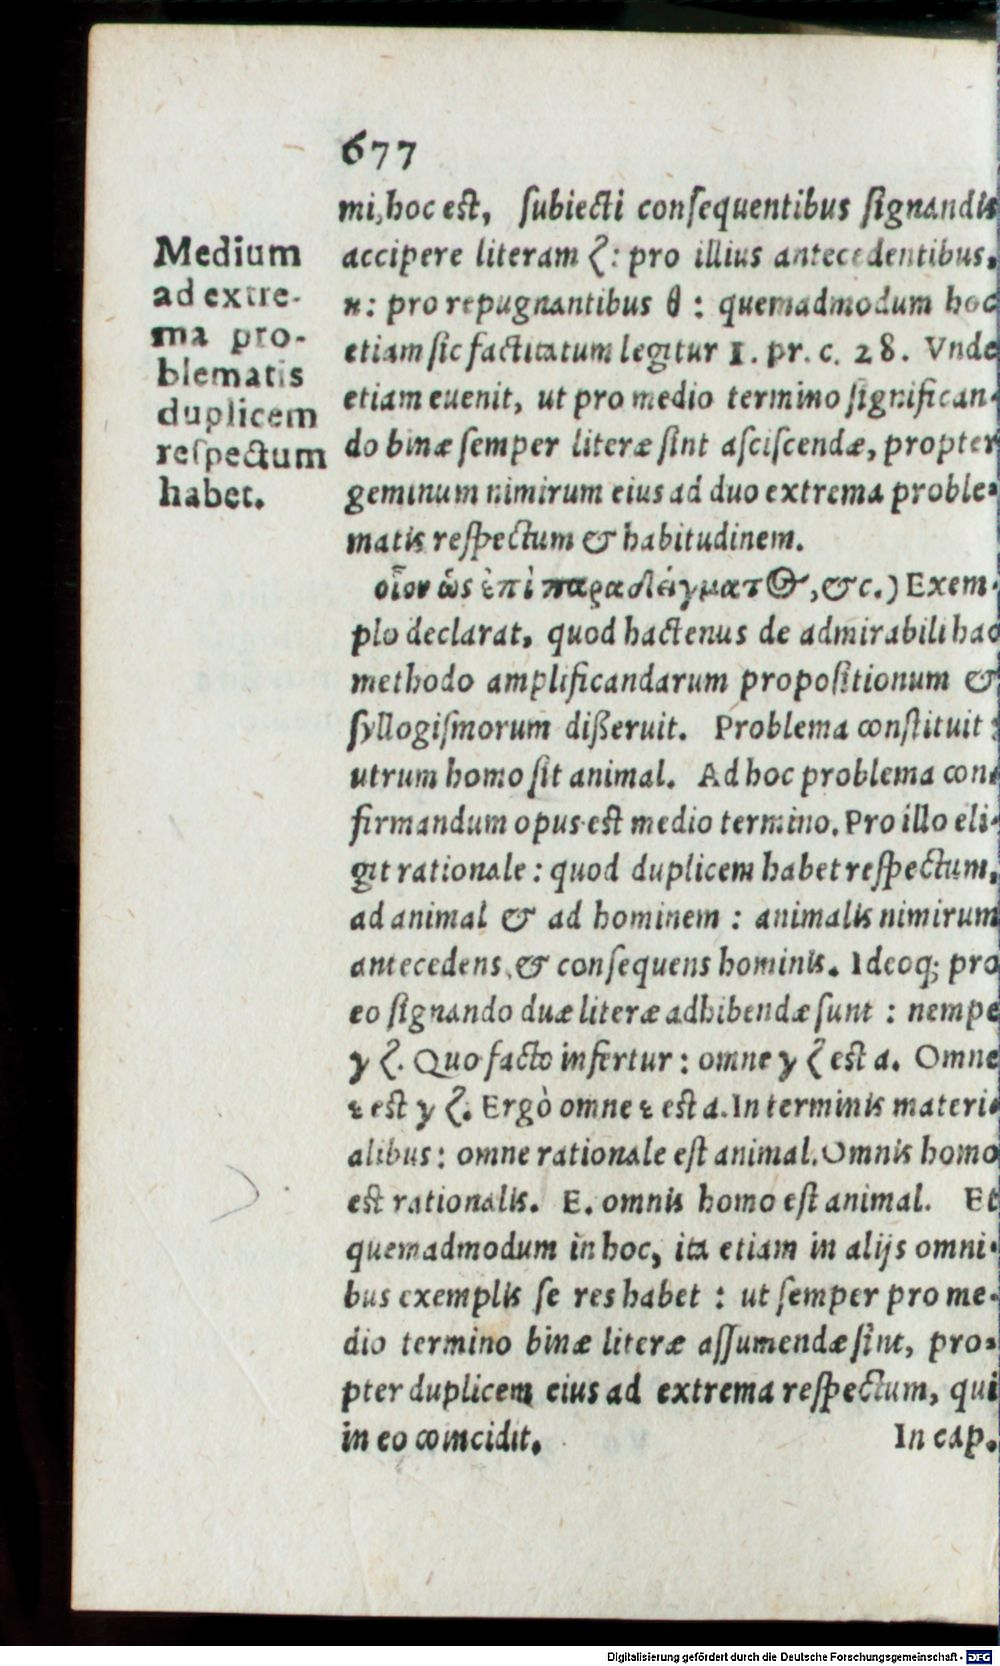 677
mi, hoc est, subiecti consequentibus signandis
accipere literam ζ: pro illius antecedentibus,
κ: pro repugnantibus θ : quemadmodum hoc
etiam sic factitatum legitur 1. pr. c. 28. Vnde
etiam euenit, ut pro medio termino significan-
do binæ semper literæ sint asciscendæ, propter
geminum nimirum eius ad duo extrema proble-
matis respectum & habitudinem.
Medium
ad extre-
ma pro-
blematis
duplicem
respectum
habet.
οἷον ὡς ἐπὶ παραδείγματος, &c.) Exem-
plo declarat, quod hactenus de admirabili hac
methodo amplificandarum propositionum &
syllogismorum dißeruit. Problema constituit :
utrum homo sit animal. Ad hoc problema con-
firmandum opus est medio termino. Pro illo eli-
git rationale : quod duplicem habet respectum,
ad animal & ad hominem : animalis nimirum
antecedens, & consequens hominis. Ideoq; pro
eo signando duæ literæ adhibendæ sunt : nempe
γ ζ. Quo facto infertur : omne γ ζ est α. Omne
ε est γ ζ. Ergò omne ε est α. In terminis materi-
alibus : omne rationale est animal. Omnis homo
est rationalis. E. omnis homo est animal. Et
quemadmodum in hoc, ita etiam in alijs omni-
bus exemplis se res habet : ut semper pro me-
dio termino binæ literæ assumendæ sint, pro-
pter duplicem eius ad extrema respectum, qui
in eo coincidit. In cap.
Digitalisierung gefördert durch die Deutsche Forschungsgemeinschaft - DFG